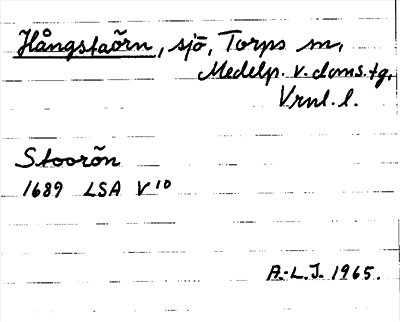 Hångstaörn, sjö, Torps sn,
Medelp. v. doms. tg.
Vrnl. l.
Stoorön
1689 LSA V 10
A.-L.J. 1965.